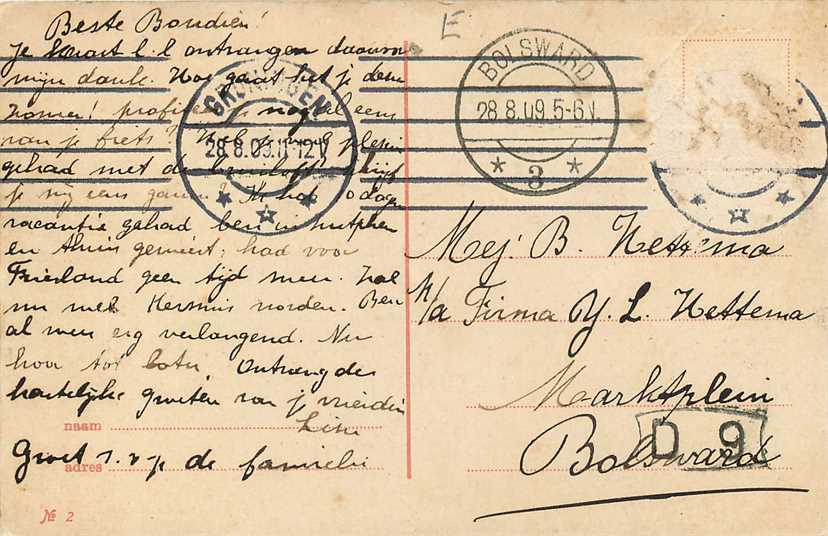 Beste Boudien!
Je kaart l.l. ontvangen daarvoor
mijn dank. Hoe gaat het je deze
zomer! profiteer je nogal eens
van je fiets? Heb je veel plezier
gehad met de bruiloft? schrijf
je mij eens gauw? Ik had dagen
vacantie gehad ben in Zutphen
en thuis geweest; had voor
Friesland geen tijd meer. Zal
nu met Kermis worden. Ben
al weer erg verlangend. Nu
hoor tot later. Ontvang de
hartelijke groeten van je vriendin
Line
Groet s.v.p. de familie
naam
adres
№ 2
E
GRONINGEN
28.8.09.11-12V
BOLSWARD
28.8.09.5-6N.
3
Mej. B. Nettema
p/a Firma Y. L. Nettema
Marktplein
Bolsward
D 9